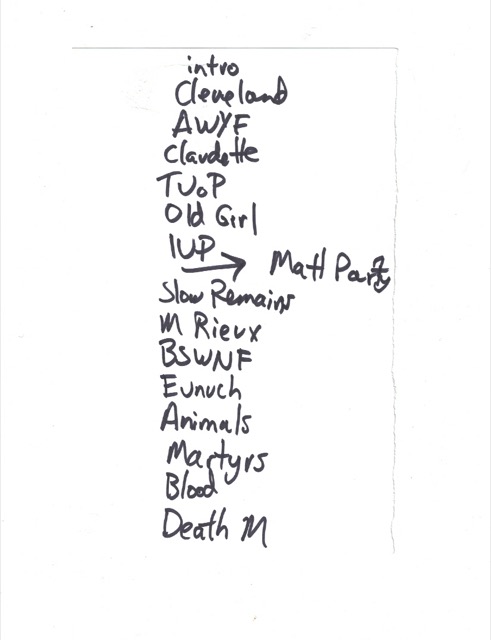 intro
Cleveland
AWYF
Claudette
TVoP
Old Girl
1UP → Matt Party
Slow Remains
M Rieux
BSWNF
Eunuch
Animals
Martyrs
Blood
Death M